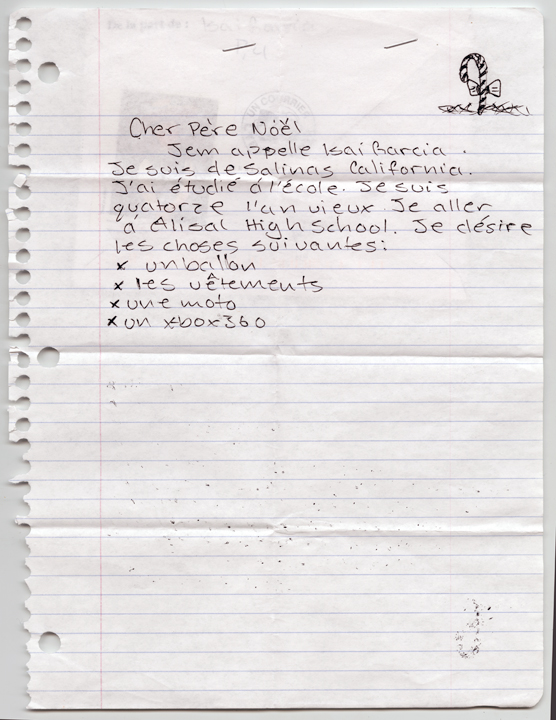 Cher Père Nöël
Jem appelle Isai Garcia.
Je suis de Salinas California.
J'ai étudié á l'école. Je suis
quatorze l'an vieux Je aller
á Alisal High School. Je désire
les choses suivantes:
x un ballon
x les vêtements
x une moto
x un xbox360